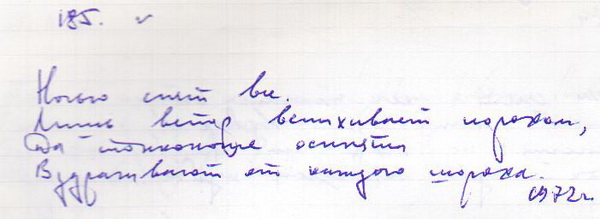 185. ✓
Ночью спят все.
Лишь ветер вспихивает порохом,
Да тонконогие осинки
Вздрагивают от каждого шороха.
1972 г.